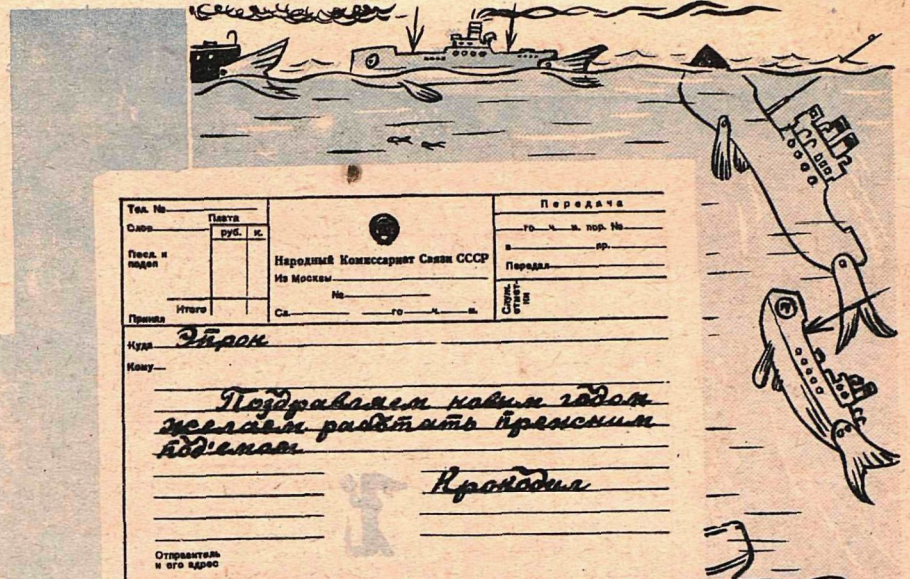 Тел. №
Слов
Плата
руб. к.
Посл. и
подап
Итого
Принял
Народный Комиссариат Связи СССР
Из Москвы
№
Сл. го ч. м.
Передача
го ч. м. пор. №
в пр.
Передал
Служ.
отмет-
ки
Куда Эпрон
Кому
Поздравляем новым годом
желаем работать прежним
под'емом
Крокодил
Отправитель
и его адрес